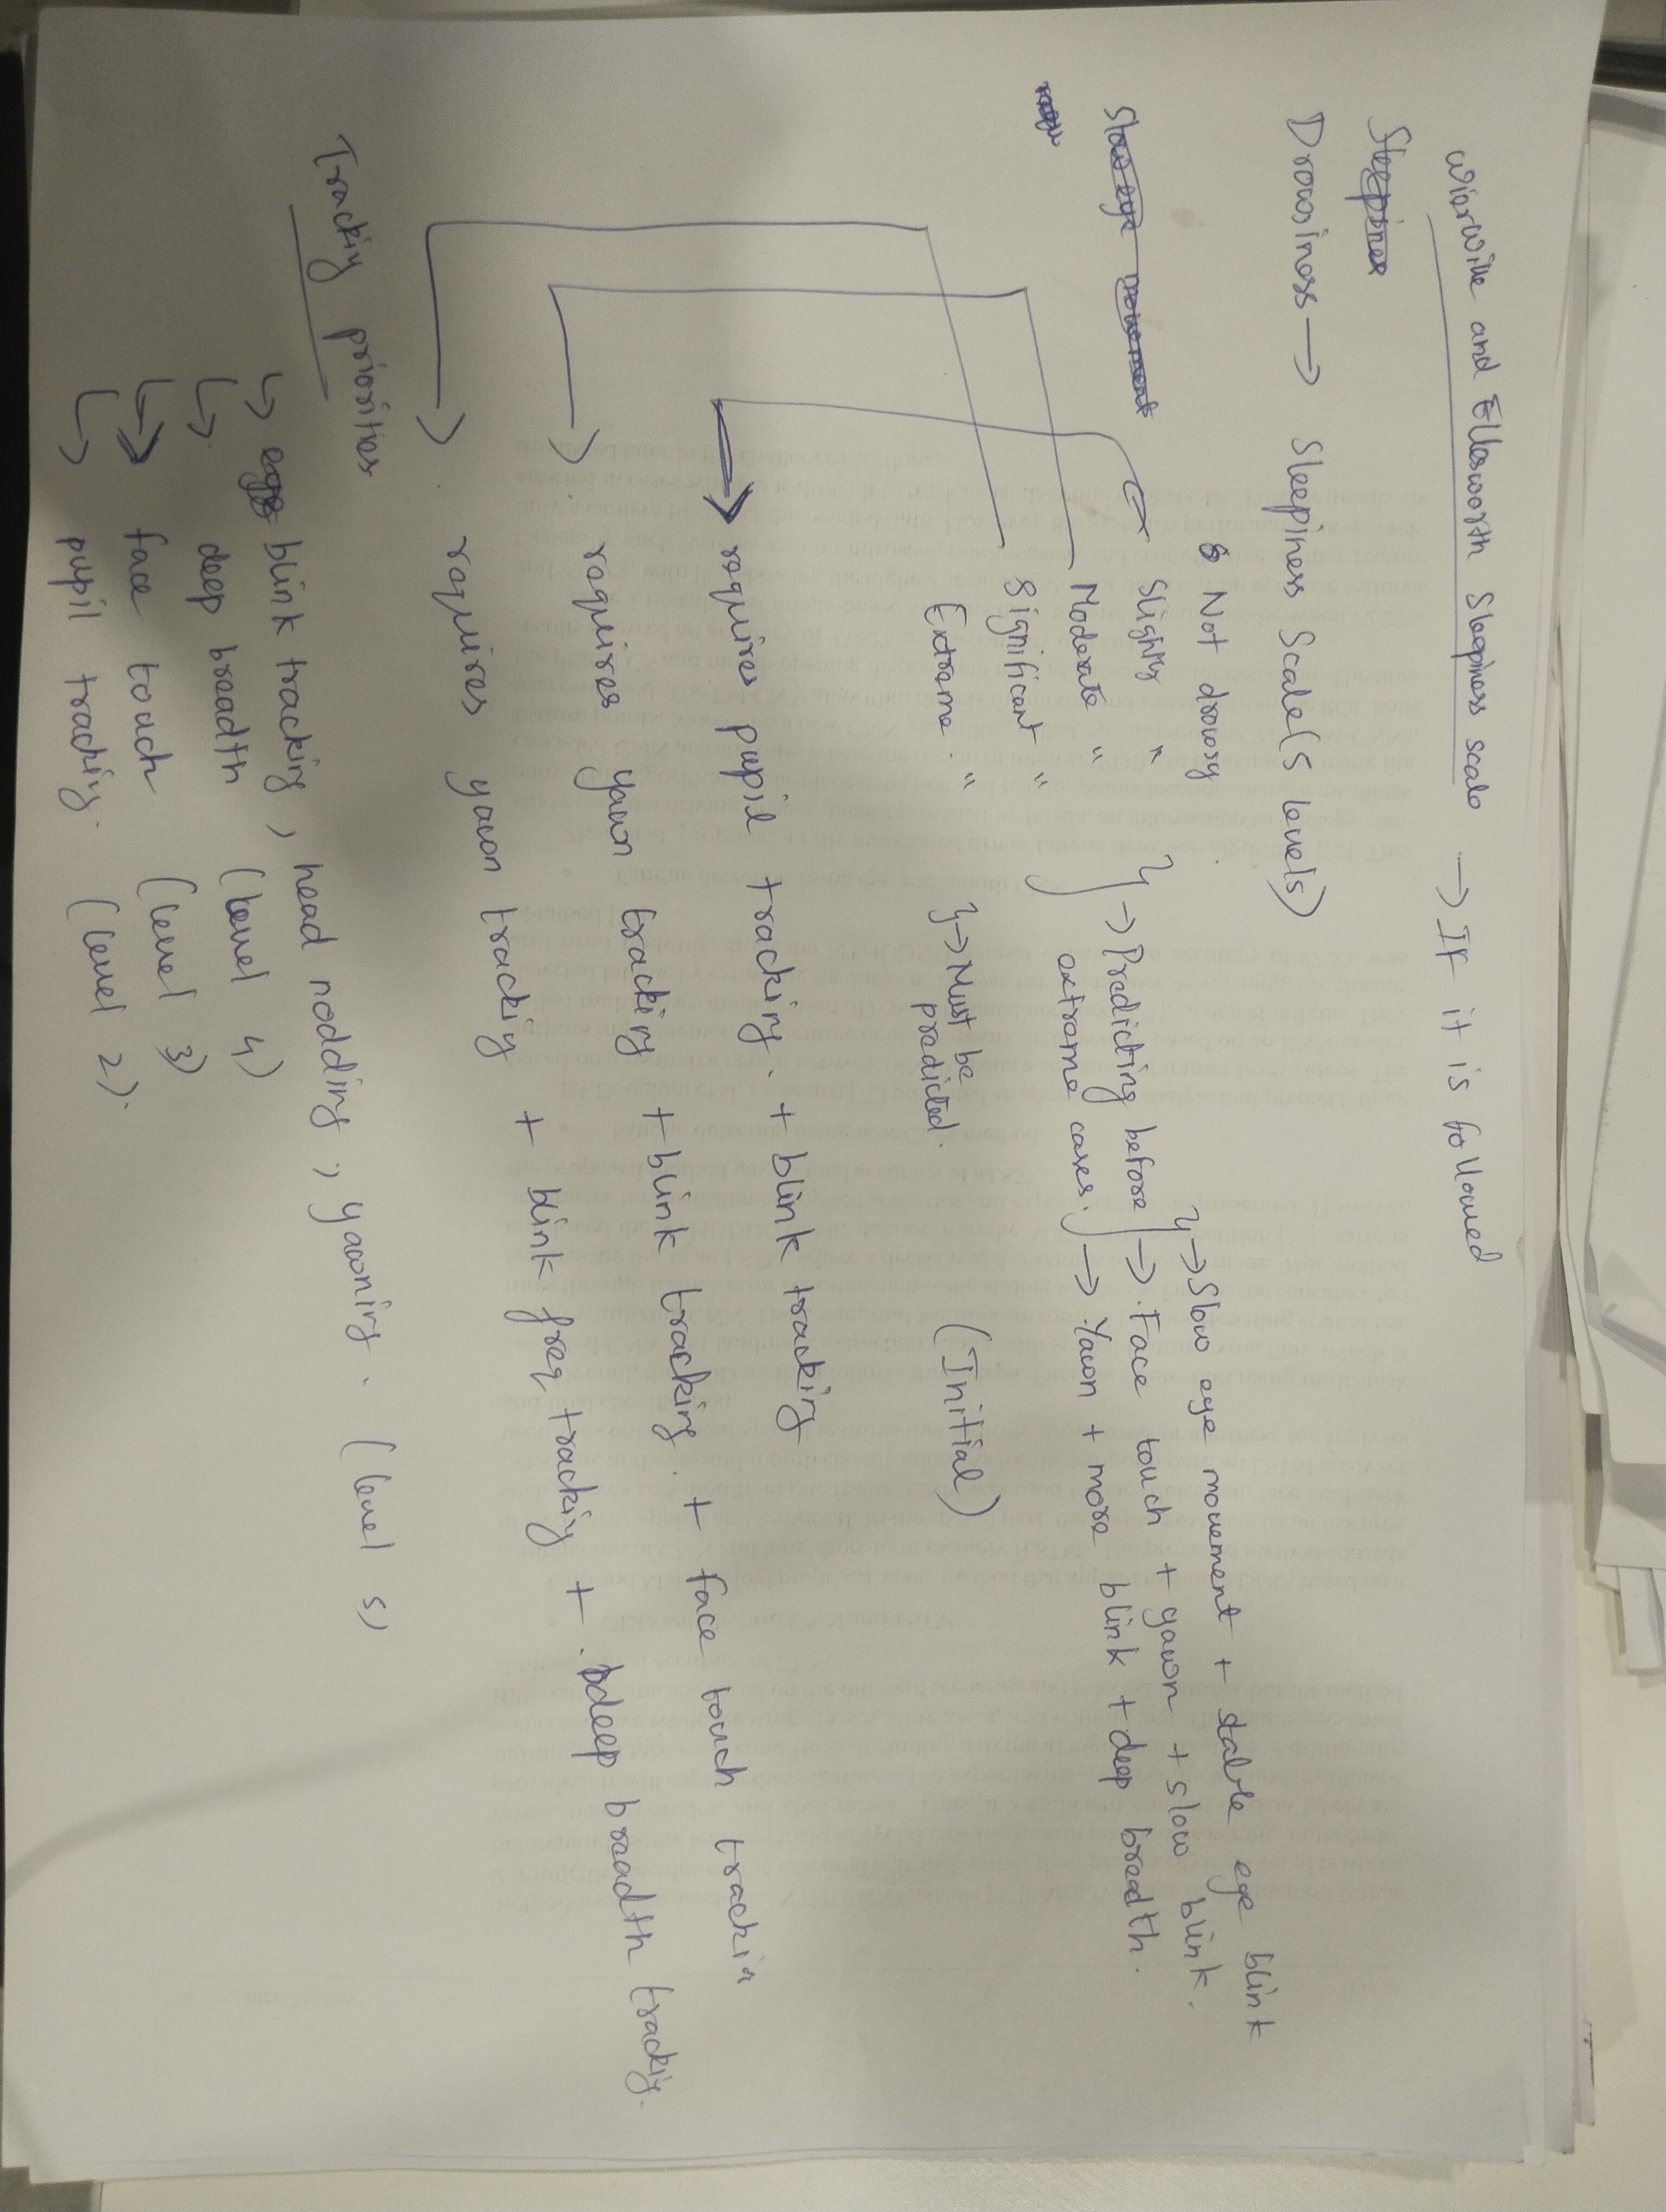 Wierwille and Ellesworth Sleepiness scale → If it is followed
Sleepines
Drowsiness → Sleepiness Scale (5 levels)
Not drowsy
Slighty "
Moderate "
Significant "
Extreme "
Slow eye movement
requ
} → Predicting before extreme cases.
} → Slow eye movement + stable eye blink
→ Face touch + yawn + slow blink.
→ Yawn + more blink + deep breadth.
} → Must be predicted.
(Initial)
→ requires pupil tracking. + blink tracking
→ requires yawn tracking + blink tracking. + face touch trackin
→ requires yawn tracking + blink freq tracking + deep breadth tracking.
Tracking priorities
↳ eye blink tracking, head nodding, yawning. (level 5)
↳ deep breadth (level 4)
↳ face touch (level 3)
↳ pupil tracking. (level 2).